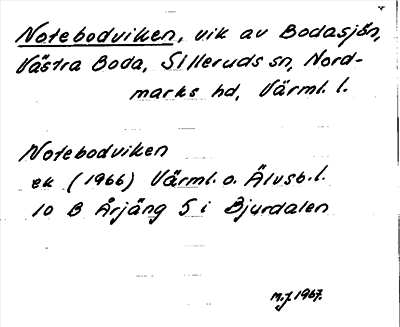 Notebodviken, vik av Bodasjön,
Västra Boda, Silleruds sn, Nord-
marks hd, Värml. l.
Notebodviken
ek (1966) Värml. o. Älvsb. l.
10 B Årjäng S i Bjurdalen
M.J. 1967.